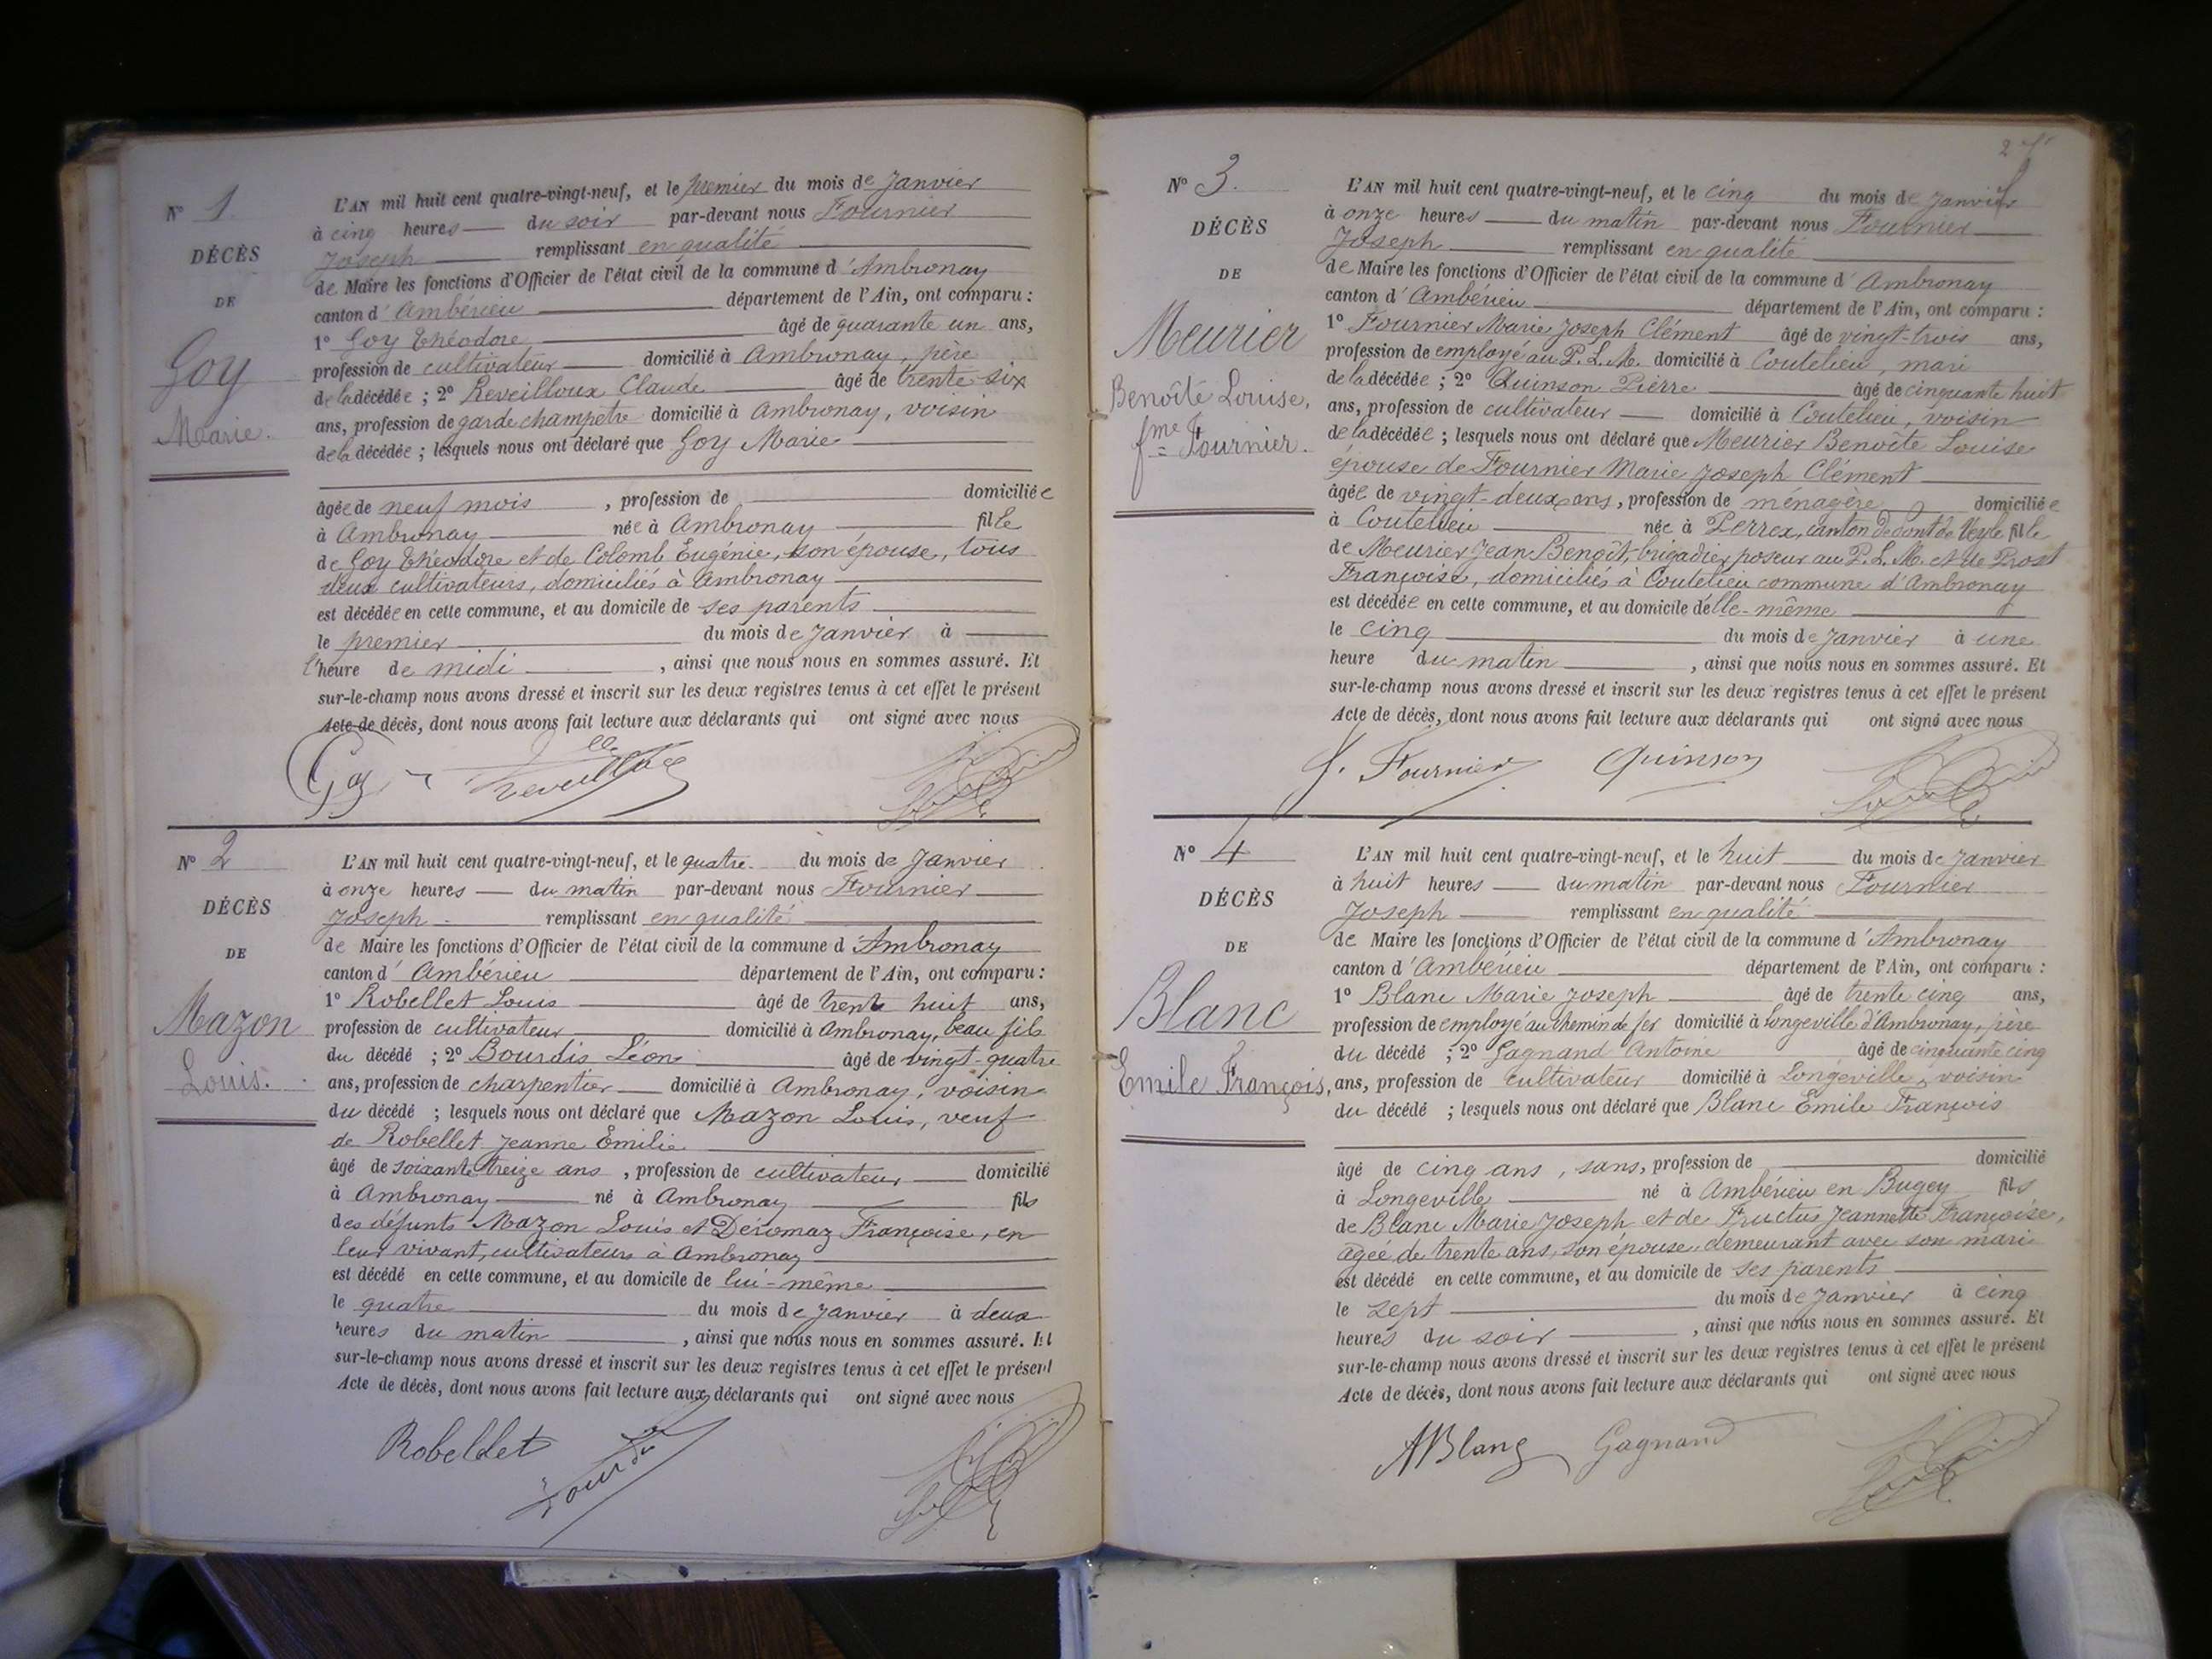 N° 1
DÉCÈS
DE
Goy
Marie.
L'AN mil huit cent quatre-vingt-neuf, et le premier du mois de Janvier
à cinq heures du soir par-devant nous Fournier
Joseph remplissant en qualité
de Maire les fonctions d'Officier de l'état civil de la commune d'Ambronay
canton d'Ambérieu département de l'Ain, ont comparu :
1° Goy Théodore, âgé de quarante un ans,
profession de cultivateur domicilié à Ambronay, père
de la décédée ; 2° Reveilloux Claude âgé de trente six
ans, profession de garde champêtre domicilié à Ambronay, voisin
de la décédée ; lesquels nous ont déclaré que Goy Marie
âgée de neuf mois , profession de domiciliée
à Ambronay née à Ambronay fille
de Goy Théodore et de Colomb Eugénie, son épouse, tous
deux cultivateurs, domiciliés à Ambronay
est décédée en cette commune, et au domicile de ses parents
le premier du mois de Janvier à
l'heure de midi , ainsi que nous nous en sommes assuré. Et
sur-le-champ nous avons dressé et inscrit sur les deux registres tenus à cet effet le présent
Acte de décès, dont nous avons fait lecture aux déclarants qui ont signé avec nous
Goy Reveilloux
N° 2
DÉCÈS
DE
Mazon
Louis.
L'AN mil huit cent quatre-vingt-neuf, et le quatre du mois de Janvier
à onze heures du matin par-devant nous Fournier
Joseph remplissant en qualité
de Maire les fonctions d'Officier de l'état civil de la commune d'Ambronay
canton d'Ambérieu département de l'Ain, ont comparu :
1° Robellet Louis âgé de trente huit ans,
profession de cultivateur domicilié à Ambronay, beau fils
du décédé ; 2° Bourdis Léon âgé de vingt-quatre
ans, profession de charpentier domicilié à Ambronay, voisin
du décédé ; lesquels nous ont déclaré que Mazon Louis, veuf
de Robellet Jeanne Emilie
âgé de soixante treize ans , profession de cultivateur domicilié
à Ambronay né à Ambronay fils
des défunts Mazon Louis et Françoise, en
leur vivant, cultivateurs à Ambronay
est décédé en cette commune, et au domicile de lui-même
le quatre du mois de Janvier à deux
heures du matin , ainsi que nous nous en sommes assuré. Et
sur-le-champ nous avons dressé et inscrit sur les deux registres tenus à cet effet le présent
Acte de décès, dont nous avons fait lecture aux déclarants qui ont signé avec nous
Robellet
2
N° 3.
DÉCÈS
DE
Meurier
Benoîte Louise,
fme Fournier.
L'AN mil huit cent quatre-vingt-neuf, et le cinq du mois de Janvier
à onze heures du matin par-devant nous Fournier
Joseph remplissant en qualité
de Maire les fonctions d'Officier de l'état civil de la commune d'Ambronay
canton d'Ambérieu département de l'Ain, ont comparu :
1° Fournier Marie Joseph Clément âgé de vingt-trois ans,
profession de employé au P. L. M. domicilié à Coutelieu, mari
de la décédée ; 2° Quinson Pierre âgé de cinquante huit
ans, profession de cultivateur domicilié à Coutelieu, voisin
de la décédée ; lesquels nous ont déclaré que Meurier Benoîte Louise
épouse de Fournier Marie Joseph Clément
âgée de vingt-deux ans, profession de ménagère domiciliée
à Coutelieu née à Perrex, canton de Pont de Veyle fille
de Meurier Jean Benoît, brigadier poseur au P. L. M. et de Prost
Françoise, domiciliés à Coutelieu commune d'Ambronay
est décédée en cette commune, et au domicile d'elle-même
le cinq du mois de Janvier à une
heure du matin , ainsi que nous nous en sommes assuré. Et
sur-le-champ nous avons dressé et inscrit sur les deux registres tenus à cet effet le présent
Acte de décès, dont nous avons fait lecture aux déclarants qui ont signé avec nous
J. Fournier Quinson
N° 4
DÉCÈS
DE
Blanc
Emile François,
L'AN mil huit cent quatre-vingt-neuf, et le huit du mois de Janvier
à huit heures du matin par-devant nous Fournier
Joseph remplissant en qualité
de Maire les fonctions d'Officier de l'état civil de la commune d'Ambronay
canton d'Ambérieu département de l'Ain, ont comparu :
1° Blanc Marie Joseph âgé de trente cinq ans,
profession de employé au chemin de fer domicilié à Longeville d'Ambronay, père
du décédé ; 2° Gagnand Antoine âgé de cinquante cinq
ans, profession de cultivateur domicilié à Longeville, voisin
du décédé ; lesquels nous ont déclaré que Blanc Emile François
âgé de cinq ans, sans, profession de domicilié
à Longeville né à Ambérieu en Bugey fils
de Blanc Marie Joseph et de Fructus Jeannette Françoise,
âgée de trente ans, son épouse, demeurant avec son mari
est décédé en cette commune, et au domicile de ses parents
le sept du mois de Janvier à cinq
heures du soir , ainsi que nous nous en sommes assuré. Et
sur-le-champ nous avons dressé et inscrit sur les deux registres tenus à cet effet le présent
Acte de décès, dont nous avons fait lecture aux déclarants qui ont signé avec nous
Blanc Gagnand